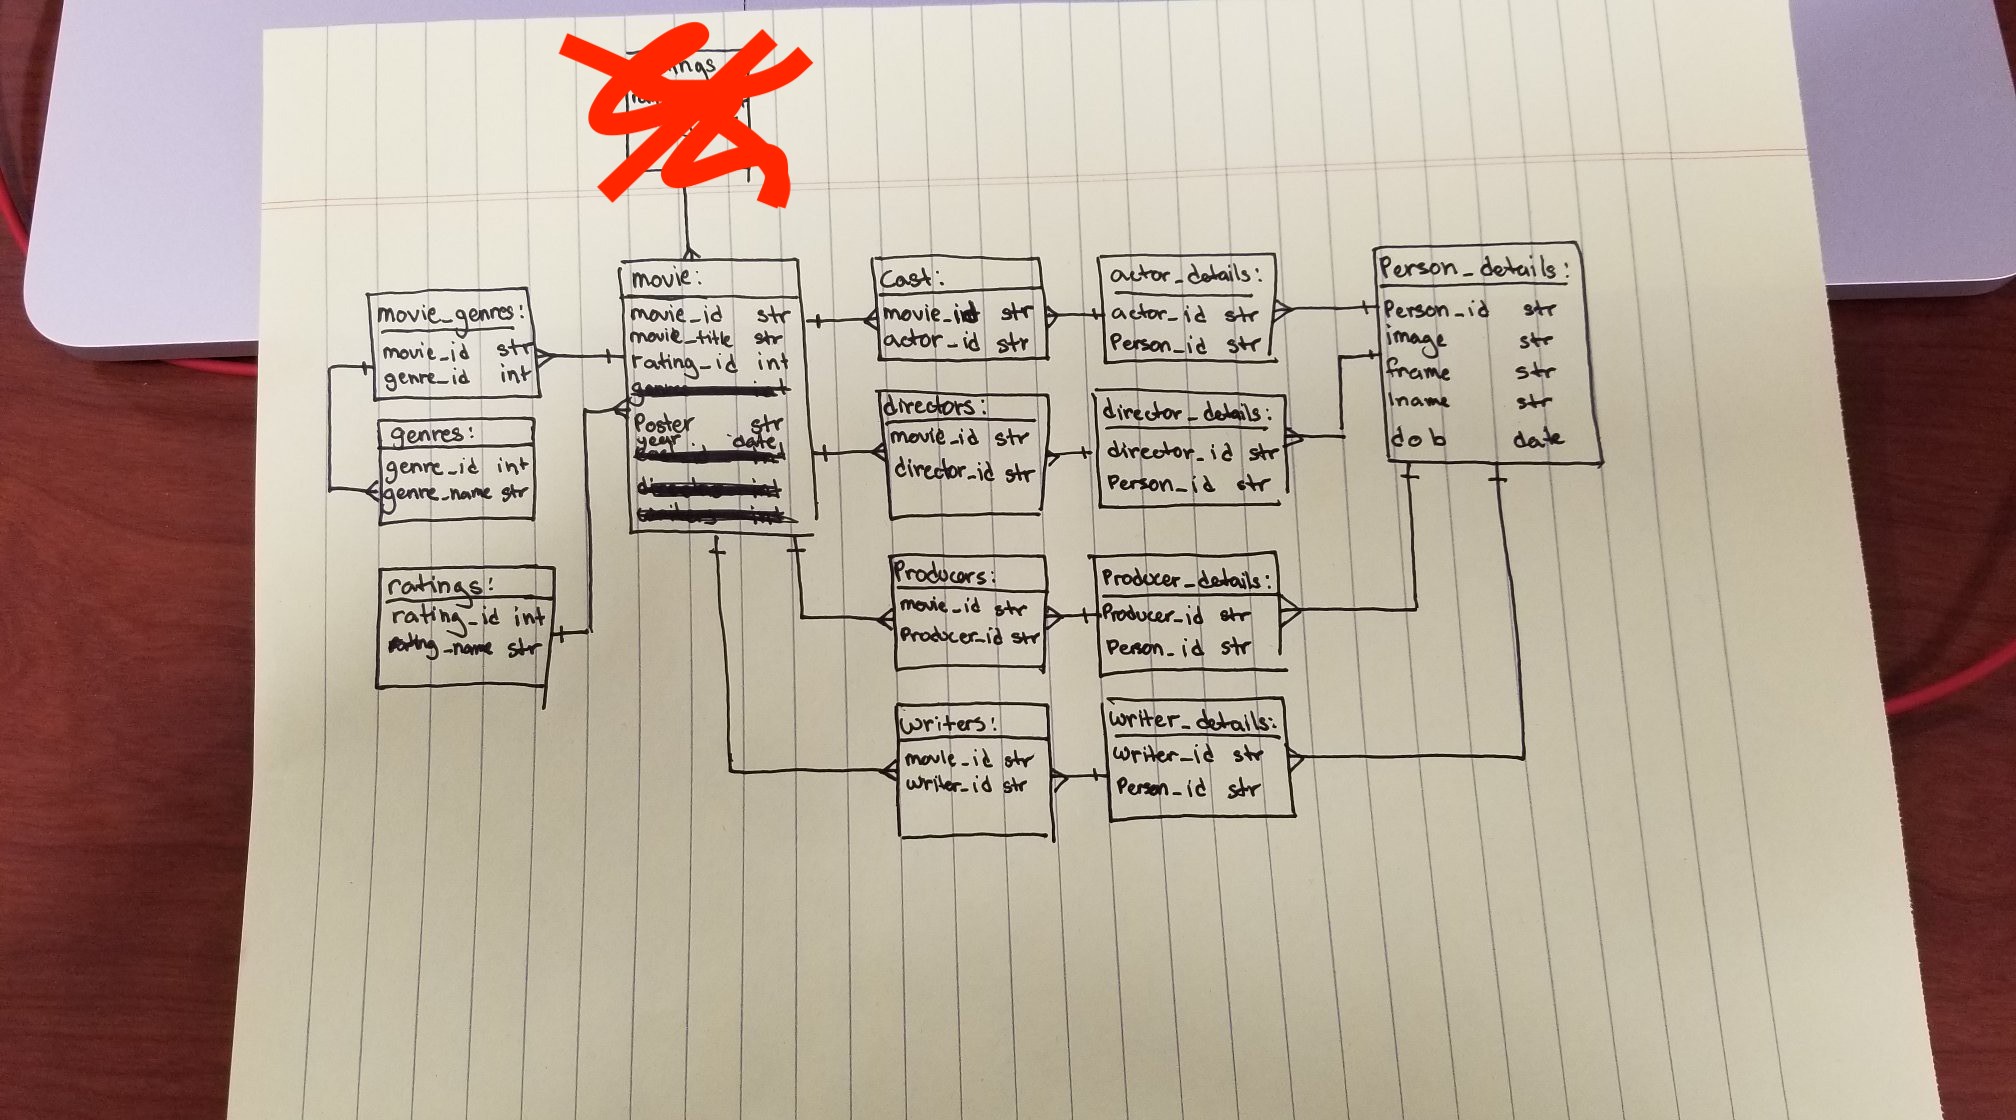 ings
movie_genres:
movie_id str
genre_id int
genres:
genre_id int
genre_name str
ratings:
rating_id int
rating_name str
movie:
movie_id str
movie_title str
rating_id int
Poster str
year date
Cast:
movie_id str
actor_id str
directors:
movie_id str
director_id str
Producers:
movie_id str
Producer_id str
writers:
movie_id str
writer_id str
actor_details:
actor_id str
Person_id str
director_details:
director_id str
Person_id str
Producer_details:
Producer_id str
Person_id str
writer_details:
writer_id str
Person_id str
Person_details:
Person_id str
image str
fname str
lname str
dob date